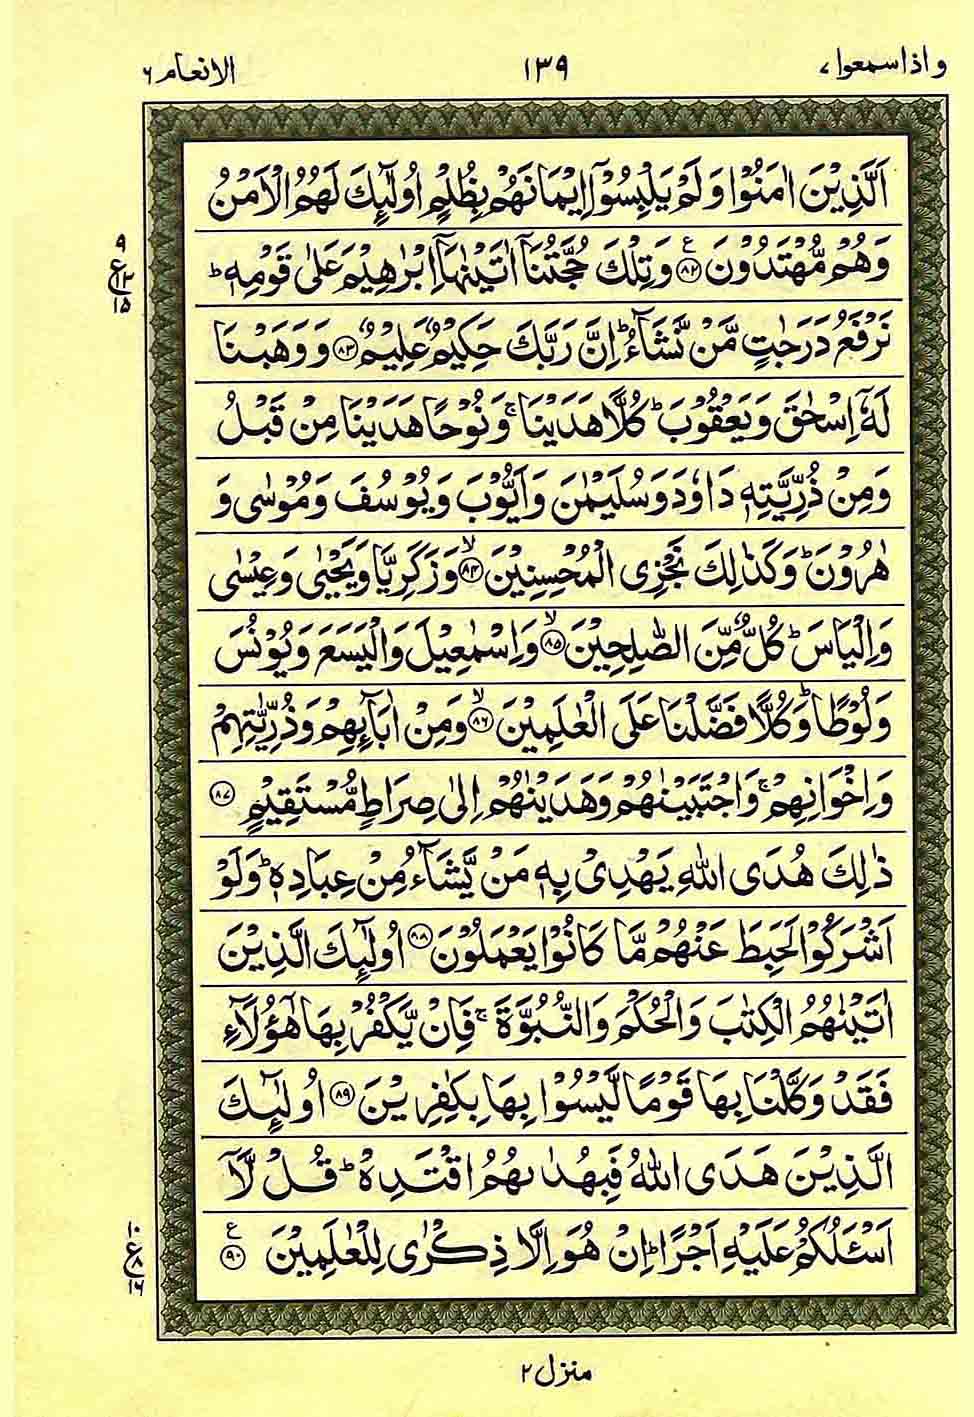 واذاسمعوا ۷ ۱۳۹ الانعام ۶
اَلَّذِيْنَ اٰمَنُوْا وَلَمْ يَلْبِسُوْۤا اِيْمَانَهُمْ بِظُلْمٍ اُولٰٓئِكَ لَهُمُ الْاَمْنُ
وَهُمْ مُّهْتَدُوْنَ ﴿۸۲﴾ ع وَتِلْكَ حُجَّتُنَاۤ اٰتَيْنٰهَاۤ اِبْرٰهِيْمَ عَلٰى قَوْمِهٖ ؕ
۹
ع
۱۲
۱۵
نَرْفَعُ دَرَجٰتٍ مَّنْ نَّشَآءُ ؕ اِنَّ رَبَّكَ حَكِيْمٌ عَلِيْمٌ ﴿۸۳﴾ وَوَهَبْنَا
لَهٗۤ اِسْحٰقَ وَيَعْقُوْبَ ؕ كُلًّا هَدَيْنَا ۚ وَنُوْحًا هَدَيْنَا مِنْ قَبْلُ
وَمِنْ ذُرِّيَّتِهٖ دَاوٗدَ وَسُلَيْمٰنَ وَاَيُّوْبَ وَيُوْسُفَ وَمُوْسٰى وَ
هٰرُوْنَ ؕ وَكَذٰلِكَ نَجْزِى الْمُحْسِنِيْنَ ﴿۸۴﴾ ۙ وَزَكَرِيَّا وَيَحْيٰى وَعِيْسٰى
وَاِلْيَاسَ ؕ كُلٌّ مِّنَ الصّٰلِحِيْنَ ﴿۸۵﴾ ۙ وَاِسْمٰعِيْلَ وَالْيَسَعَ وَيُوْنُسَ
وَلُوْطًا ؕ وَكُلًّا فَضَّلْنَا عَلَى الْعٰلَمِيْنَ ﴿۸۶﴾ ۙ وَمِنْ اٰبَآئِهِمْ وَذُرِّيّٰتِهِمْ
وَاِخْوَانِهِمْ ۚ وَاجْتَبَيْنٰهُمْ وَهَدَيْنٰهُمْ اِلٰى صِرَاطٍ مُّسْتَقِيْمٍ ﴿۸۷﴾
ذٰلِكَ هُدَى اللّٰهِ يَهْدِىْ بِهٖ مَنْ يَّشَآءُ مِنْ عِبَادِهٖ ؕ وَلَوْ
اَشْرَكُوْا لَحَبِطَ عَنْهُمْ مَّا كَانُوْا يَعْمَلُوْنَ ﴿۸۸﴾ اُولٰٓئِكَ الَّذِيْنَ
اٰتَيْنٰهُمُ الْكِتٰبَ وَالْحُكْمَ وَالنُّبُوَّةَ ۚ فَاِنْ يَّكْفُرْ بِهَا هٰۤؤُلَآءِ
فَقَدْ وَكَّلْنَا بِهَا قَوْمًا لَّيْسُوْا بِهَا بِكٰفِرِيْنَ ﴿۸۹﴾ اُولٰٓئِكَ
الَّذِيْنَ هَدَى اللّٰهُ فَبِهُدٰىهُمُ اقْتَدِهْ ؕ قُلْ لَّاۤ
اَسْـَٔلُكُمْ عَلَيْهِ اَجْرًا ؕ اِنْ هُوَ اِلَّا ذِكْرٰى لِلْعٰلَمِيْنَ ﴿۹۰﴾ ع
۱۰
ع
۸
۱۶
منزل ۲